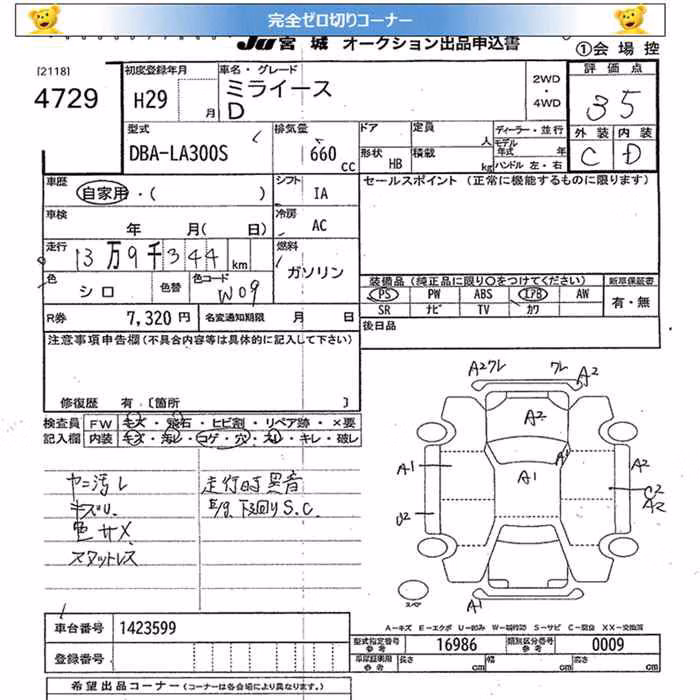 完全ゼロ切りコーナー
JU宮城 オークション出品申込書 ①会場控
[2118]
4729
初度登録年月 H29 月
車名・グレード ミライース D
2WD・4WD
評価点 35
外装 内装
C D
型式 DBA-LA300S
排気量 660 CC
ドア 定員 人
形状 HB 積載 kg
ディーラー・並行
モデル年式 年
ハンドル 左・右
車歴 自家用・( )
シフト IA
セールスポイント (正常に機能するものに限ります)
車検 年 月( 日)
冷房 AC
走行 13万9千344km
燃料 ガソリン
色 シロ 色替 色コード W09
装備品(純正品に限り○をつけてください) 新車保証書
PS PW ABS エアB AW 有・無
SR ナビ TV カワ
R券 7,320円 名変通知期限 月 日
後日品
注意事項申告欄(不具合内容等は具体的に記入して下さい)
修復歴 有 [箇所 ]
検査員記入欄 FW キズ・飛石・ヒビ割・リペア跡・×要
内装 キズ・汚レ・コゲ・穴・スレ・キレ・破レ
ヤニ汚レ
走行時異音
E/g. 下回りS.C.
色サメ
スタットレス
A2ワレ ワレ A2
A2
A1 A1 A1 A2
U2 C2
A2
スペア
A1
A－キズ E－エクボ U－凹み W－補修跡 S－サビ C－腐蝕 XX－交換済
車台番号 1423599
型式指定番号 参考 16986 類別区分番号 参考 0009
登録番号
長さ cm 幅 cm 高さ cm
希望出品コーナー(コーナーは各会場により異なります。)